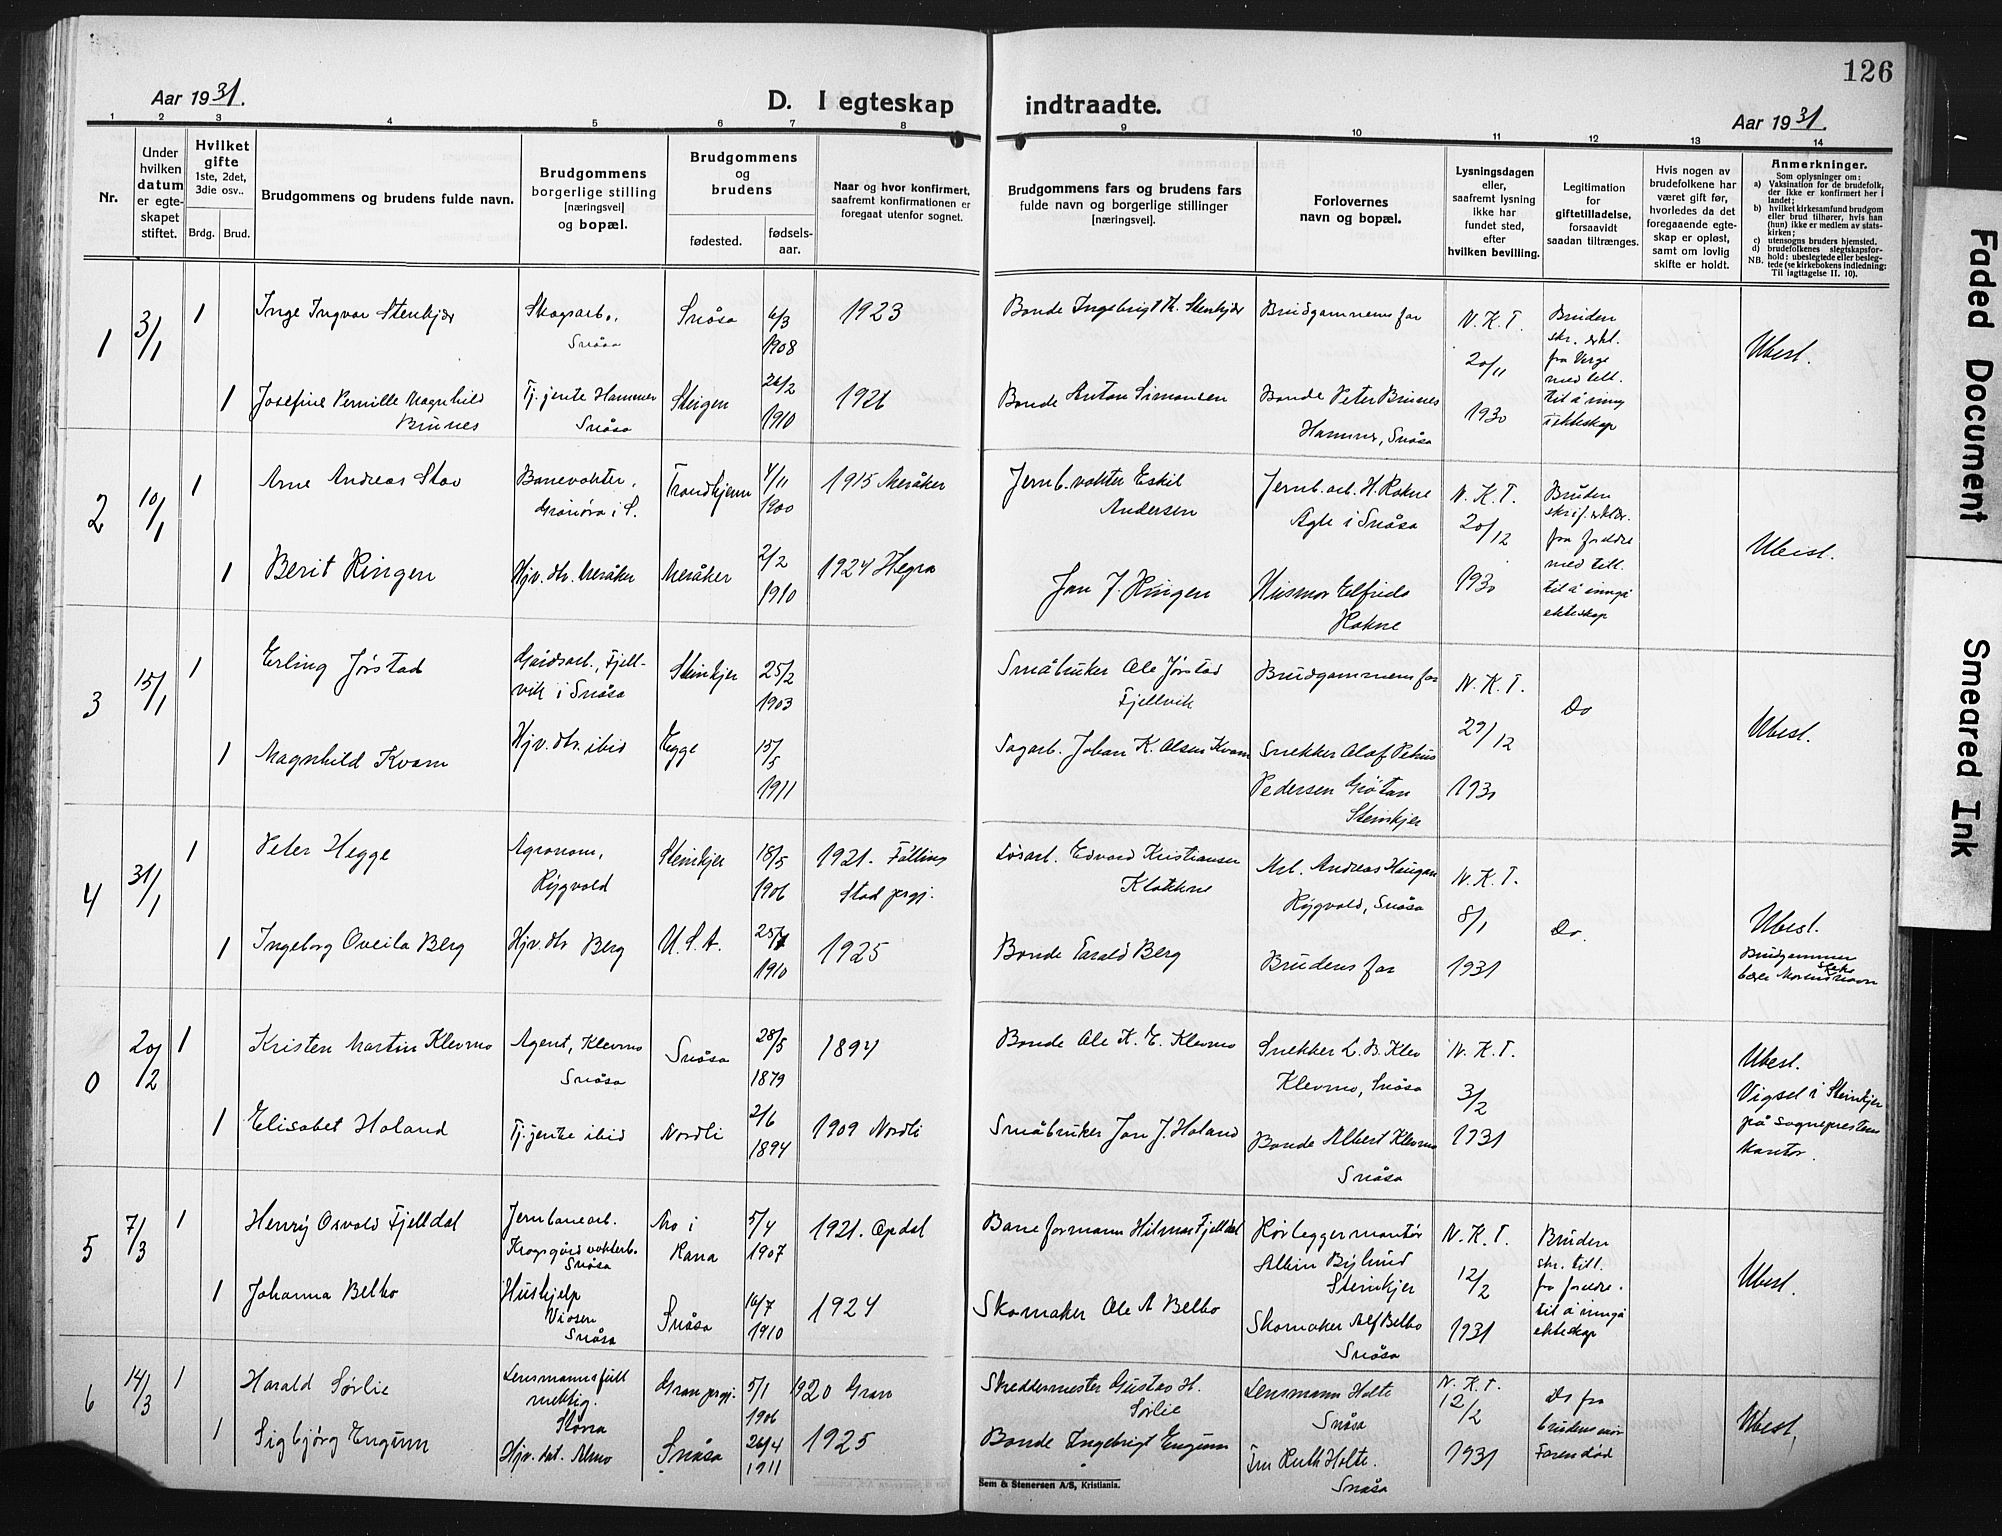 126
Aar 1931.
D. I egteskap indtraadte.
Aar 1931.
1 2 3 4 5 6 7 8 9 10 11 12 13 14
Nr.
Under hvilken datum er egteskapet stiftet.
Hvilket gifte 1ste, 2det, 3die osv..
Brdg. Brud.
Brudgommens og brudens fulde navn.
Brudgommens borgerlige stilling [næringsvei] og bopæl.
Brudgommens og brudens
fødested. fødselsaar.
Naar og hvor konfirmert, saafremt konfirmationen er foregaat utenfor sognet.
Brudgommens fars og brudens fars fulde navn og borgerlige stillinger [næringsvei].
Forlovernes navn og bopæl.
Lysningsdagen eller, saafremt lysning ikke har fundet sted, efter hvilken bevilling.
Legitimation for giftetilladelse, forsaavidt saadan tiltrænges.
Hvis nogen av brudefolkene har været gift før, hvorledes da det foregaaende egteskap er opløst, samt om lovlig skifte er holdt.
Anmerkninger.
Som oplysninger om:
a) Vaksination for de brudefolk, der ikke er konfirmert her i landet;
b) hvilket kirkesamfund brudgom eller brud tilhører, hvis han (hun) ikke er medlem av statskirken;
c) utensogns bruders hjemsted.
d) brudefolkenes slegtskapsforhold: ubeslegtede eller beslegtede (se kirkebokens indledning: NB. Til iagttagelse II. 10).
1 3/1 1 Inge Ingvar Steinkjer Skogsarb., Snåsa Snåsa 6/3 1908 1923 Bonde Ingebrigt K. Steinkjer Brudgommens far N. K. T. 20/11 1930 Bruden skr. erkl. fra Verge med till. til å inngå ekteskap Ubesl.
1 Josefine Pernille Magnhild Brunes Tj. jente Hammer Snåsa Steigen 26/2 1910 1926 Bonde Anton Simonsen Bonde Peter Brunes Hammer, Snåsa
2 10/1 1 Arne Andreas Stav Banevokter, Grønøra i S. Trondhjem 4/11 1900 1915 Meråker Jernb. vokter Eskil Andersen Jernb. arb. H. Rokne Agle i Snåsa N. K. T. 20/12 1930 Bruden skrif. erklær. fra foreldre med till. til å inngå ekteskap Ubesl.
1 Berit Ringen Hjv. dtr. Meråker Meråker 2/2 1910 1924 Hegra Jon J. Ringen Husmor Elfrida Rokne
3 15/1 1 Erling Jørstad Gårdsarb., Fjellvik i Snåsa Steinkjer 25/2 1903 Småbruker Ole Jørstad Fjellvik Brudgommens far N. K. T. 29/12 1930 Do Ubesl.
1 Magnhild Kvam Hjv. dtr. ibid Egge 15/5 1911 Sagarb. Johan K. Olsen Kvam Snekker Olaf Petrus Pedersen Grøtan Steinkjer
4 31/1 1 Peter Hegge Agronom, Rygvold Steinkjer 18/5 1906 1921. Følling Stod prgj. Løsarb. Edvard Kristiansen Klokkne Arb. Andreas Haugan Rygvold, Snåsa N. K. T. 8/1 1931 Do. Ubesl.
1 Ingeborg Oveila Berg Hjv. dtr Berg U.S.A. 25/7 1910 1925 Bonde Tarald Berg Brudens far Brudgommen bærer Morens slekts navn
0 20/2 1 Kristen Martin Klevmo Agent, Klevmo Snåsa Snåsa 28/5 1879 1894 Bonde Ole K. E. Klevmo Snekker L. B. Klev Klevmo, Snåsa N. K. T. 3/2 1931 Ubesl. Vigsel i Steinkjer på sogneprestens kontor.
1 Elisabet Holand Tj. jente ibid Nordli 2/6 1894 1909 Nordli Småbruker Jon J. Holand Bonde Albert Klevmo Snåsa
5 7/3 1 Henry Osvald Fjelldal Jernbanearb. Krogsgård vokterb. Snåsa Mo i Rana 5/4 1907 1921. Opdal Baneformann Hilmar Fjelldal Rørleggermontør Albin Bylund Steinkjer N. K. T. 12/2 1931 Bruden skr. till. fra foreldre. til å inngå ekteskap Ubesl.
1 Johanna Belbo Hushjelp Viosen Snåsa Snåsa 16/7 1910 1924 Skomaker Ole A Belbo Skomaker Alf Belbo Snåsa
6 14/3 1 Harald Sørlie Lensmannsfullmektig. Gran prgj. 5/1 1906 1920 Gran Skreddermester Gustav H. Sørlie Lensmann Holte Snåsa N. K. T. 12/2 1931 Do fra brudens mor Faren død Ubesl.
1 Sigbjørg Engum Hjv. dat. Almo Snåsa 26/4 1911 1925 Bonde Ingebrigt Engum Fru Ruth Holte. Snåsa
Sem & Stenersen A/S, Kristiania.
Faded Document
Smeared Ink